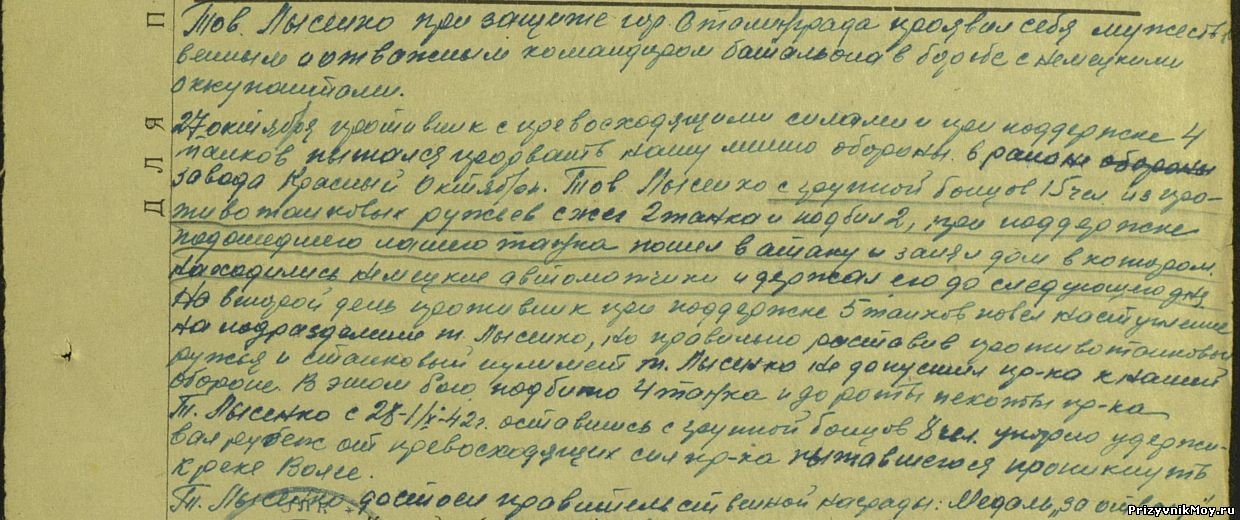 Тов. Лысенко при защите гор. Сталинграда проявил себя мужест-
венным и отважным командиром батальона в борьбе с немецкими
оккупантами.
27 октября противник с превосходящими силами и при поддержке 4
танков пытался прорвать нашу линию обороны в районе обороны
завода Красный Октябрь. Тов. Лысенко с группой бойцов 15 чел. из про-
тивотанковых ружьев сжег 2 танка и подбил 2, при поддержке
подошедшего нашего танка пошел в атаку и занял дом в котором
находились немецкие автоматчики и держал его до следующего дня
На второй день противник при поддержке 5 танков повел наступление
на подразделение т. Лысенко, но правильно раставив противотанковые
ружья и станковый пулимет т. Лысенко не допустил пр-ка к нашей
обороне. В этом бою подбито 4 танка и до роты пехоты пр-ка
Т. Лысенко с 28- 42г. оставшись с группой бойцов 8 чел. упорно удержи-
вая рубеж от превосходящих сил пр-ка пытавшегося проникнуть
к реке Волге.
Т. Лысенко достоен правительственной награды: Медаль „за отвагу"
ДЛЯ П
PrizyvnikMoy.ru